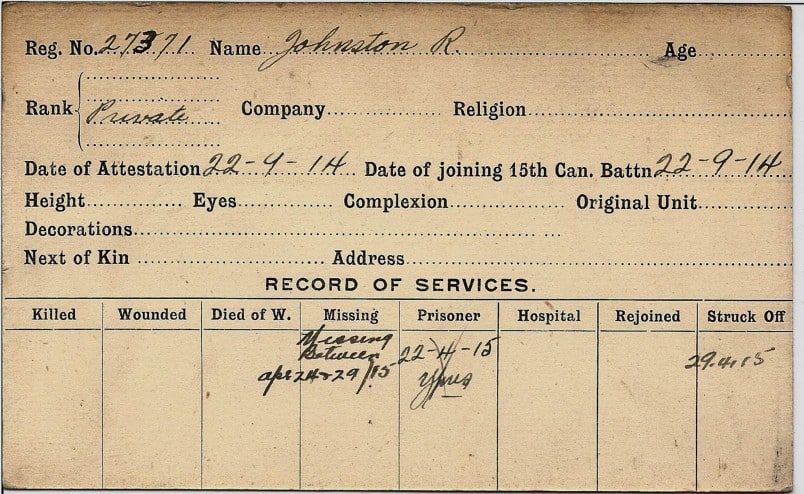 Reg. No. 27371 Name Johnston R. Age
Rank Private Company Religion
Date of Attestation 22-9-14 Date of joining 15th Can. Battn 22-9-14
Height Eyes Complexion Original Unit
Decorations
Next of Kin Address
RECORD OF SERVICES.
Killed Wounded Died of W. Missing Prisoner Hospital Rejoined Struck Off
Missing
Between 22-4-15
apr 24 & 29/15 Ypres 29.4.15